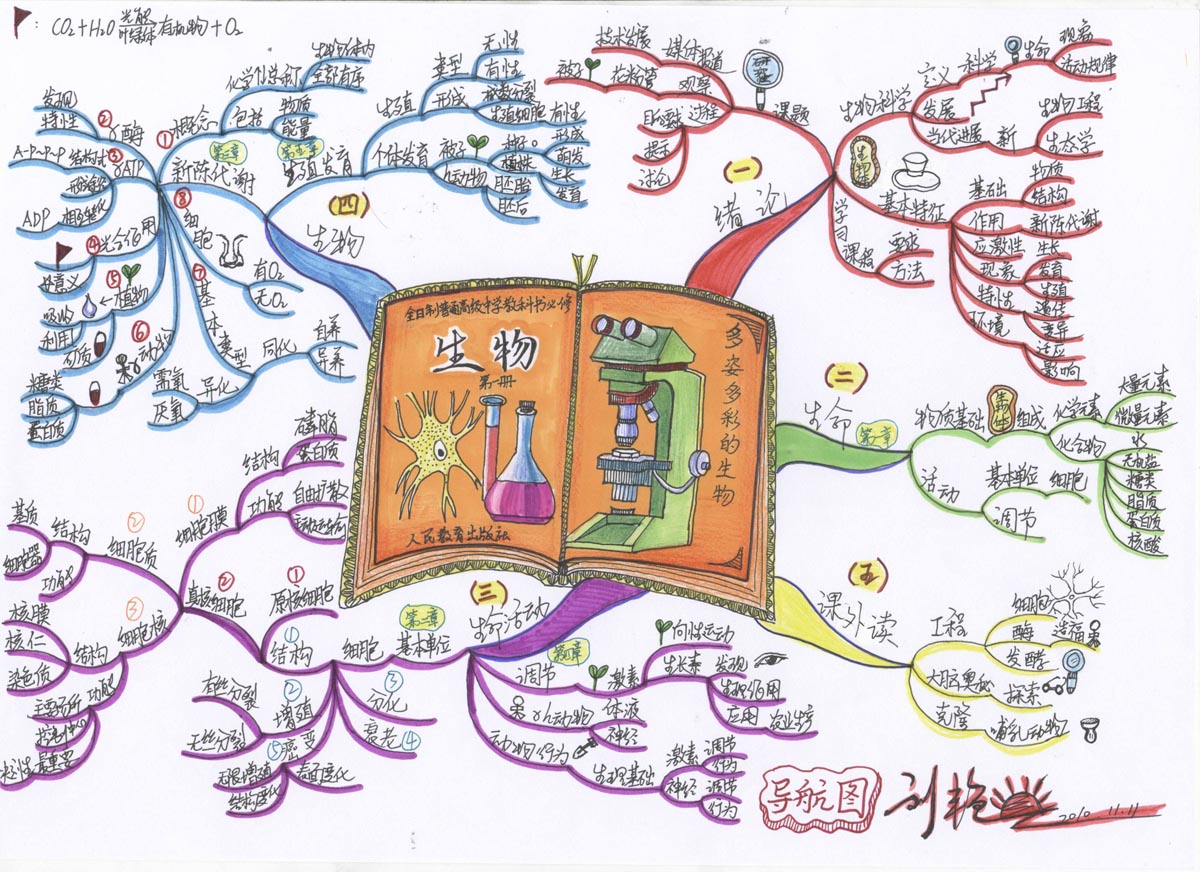 CO2+H2O 光能 叶绿体 有机物+O2
全日制普通高级中学教科书必修
生物
第一册
人民教育出版社
多姿多彩的生物
(一)
绪论
课题
研究
媒体报道
技术发展
观察
花粉管
被子
过程
目的要求
提示
讨论
生物科学
定义
科学
生命
现象
活动规律
发展
当代进展
新
生物工程
生态学
生物体
基本特征
基础
物质
结构
作用
新陈代谢
应激性
现象
生长
发育
生殖
特性
遗传
变异
环境
适应
影响
学习
课程
要求
方法
(二)
生命
第一章
物质基础
生物体
组成
化学元素
大量元素
微量元素
化合物
水
无机盐
糖类
脂质
蛋白质
核酸
活动
基本单位
细胞
调节
(三)
生命活动
第二章
基本单位
细胞
①
结构
①
原核细胞
②
真核细胞
①
细胞膜
结构
磷脂
蛋白质
功能
自由扩散
主动运输
②
细胞质
结构
基质
细胞器
功能
③
细胞核
结构
核膜
核仁
染色质
功能
主要场所
控制中心
②
增殖
有丝分裂
无丝分裂
③
分化
衰老④
⑤癌变
无限增殖
结构变化
表面变化
第四章
调节
激素
向性运动
生长素
发现
生理作用
应用
农业生产
动物
体液
神经
动物行为
生理基础
激素
调节
行为
神经
调节
行为
(四)
生物
第三章
新陈代谢
①
概念
化学反应总称
生物体内
全部有序
包括
物质
能量
②
酶
发现
特性
③
ATP
结构式
A-P~P~P
相互转化
ADP
④
光合作用
意义
⑤
植物
吸收
利用
矿质
⑥
动物
糖类
脂质
蛋白质
⑦
基本类型
同化
自养
异养
异化
需氧
厌氧
⑧
细胞
有O2
无O2
第五章
生殖发育
生殖
类型
无性
有性
形成
减数分裂
生殖细胞
有性
个体发育
被子
种子
形成
萌发
植株
生长
发育
动物
胚胎
胚后
(五)
课外读
工程
细胞
酶
造福
发酵
大脑奥秘
探索
克隆
哺乳动物
导航图
刘艳
2010 11.11